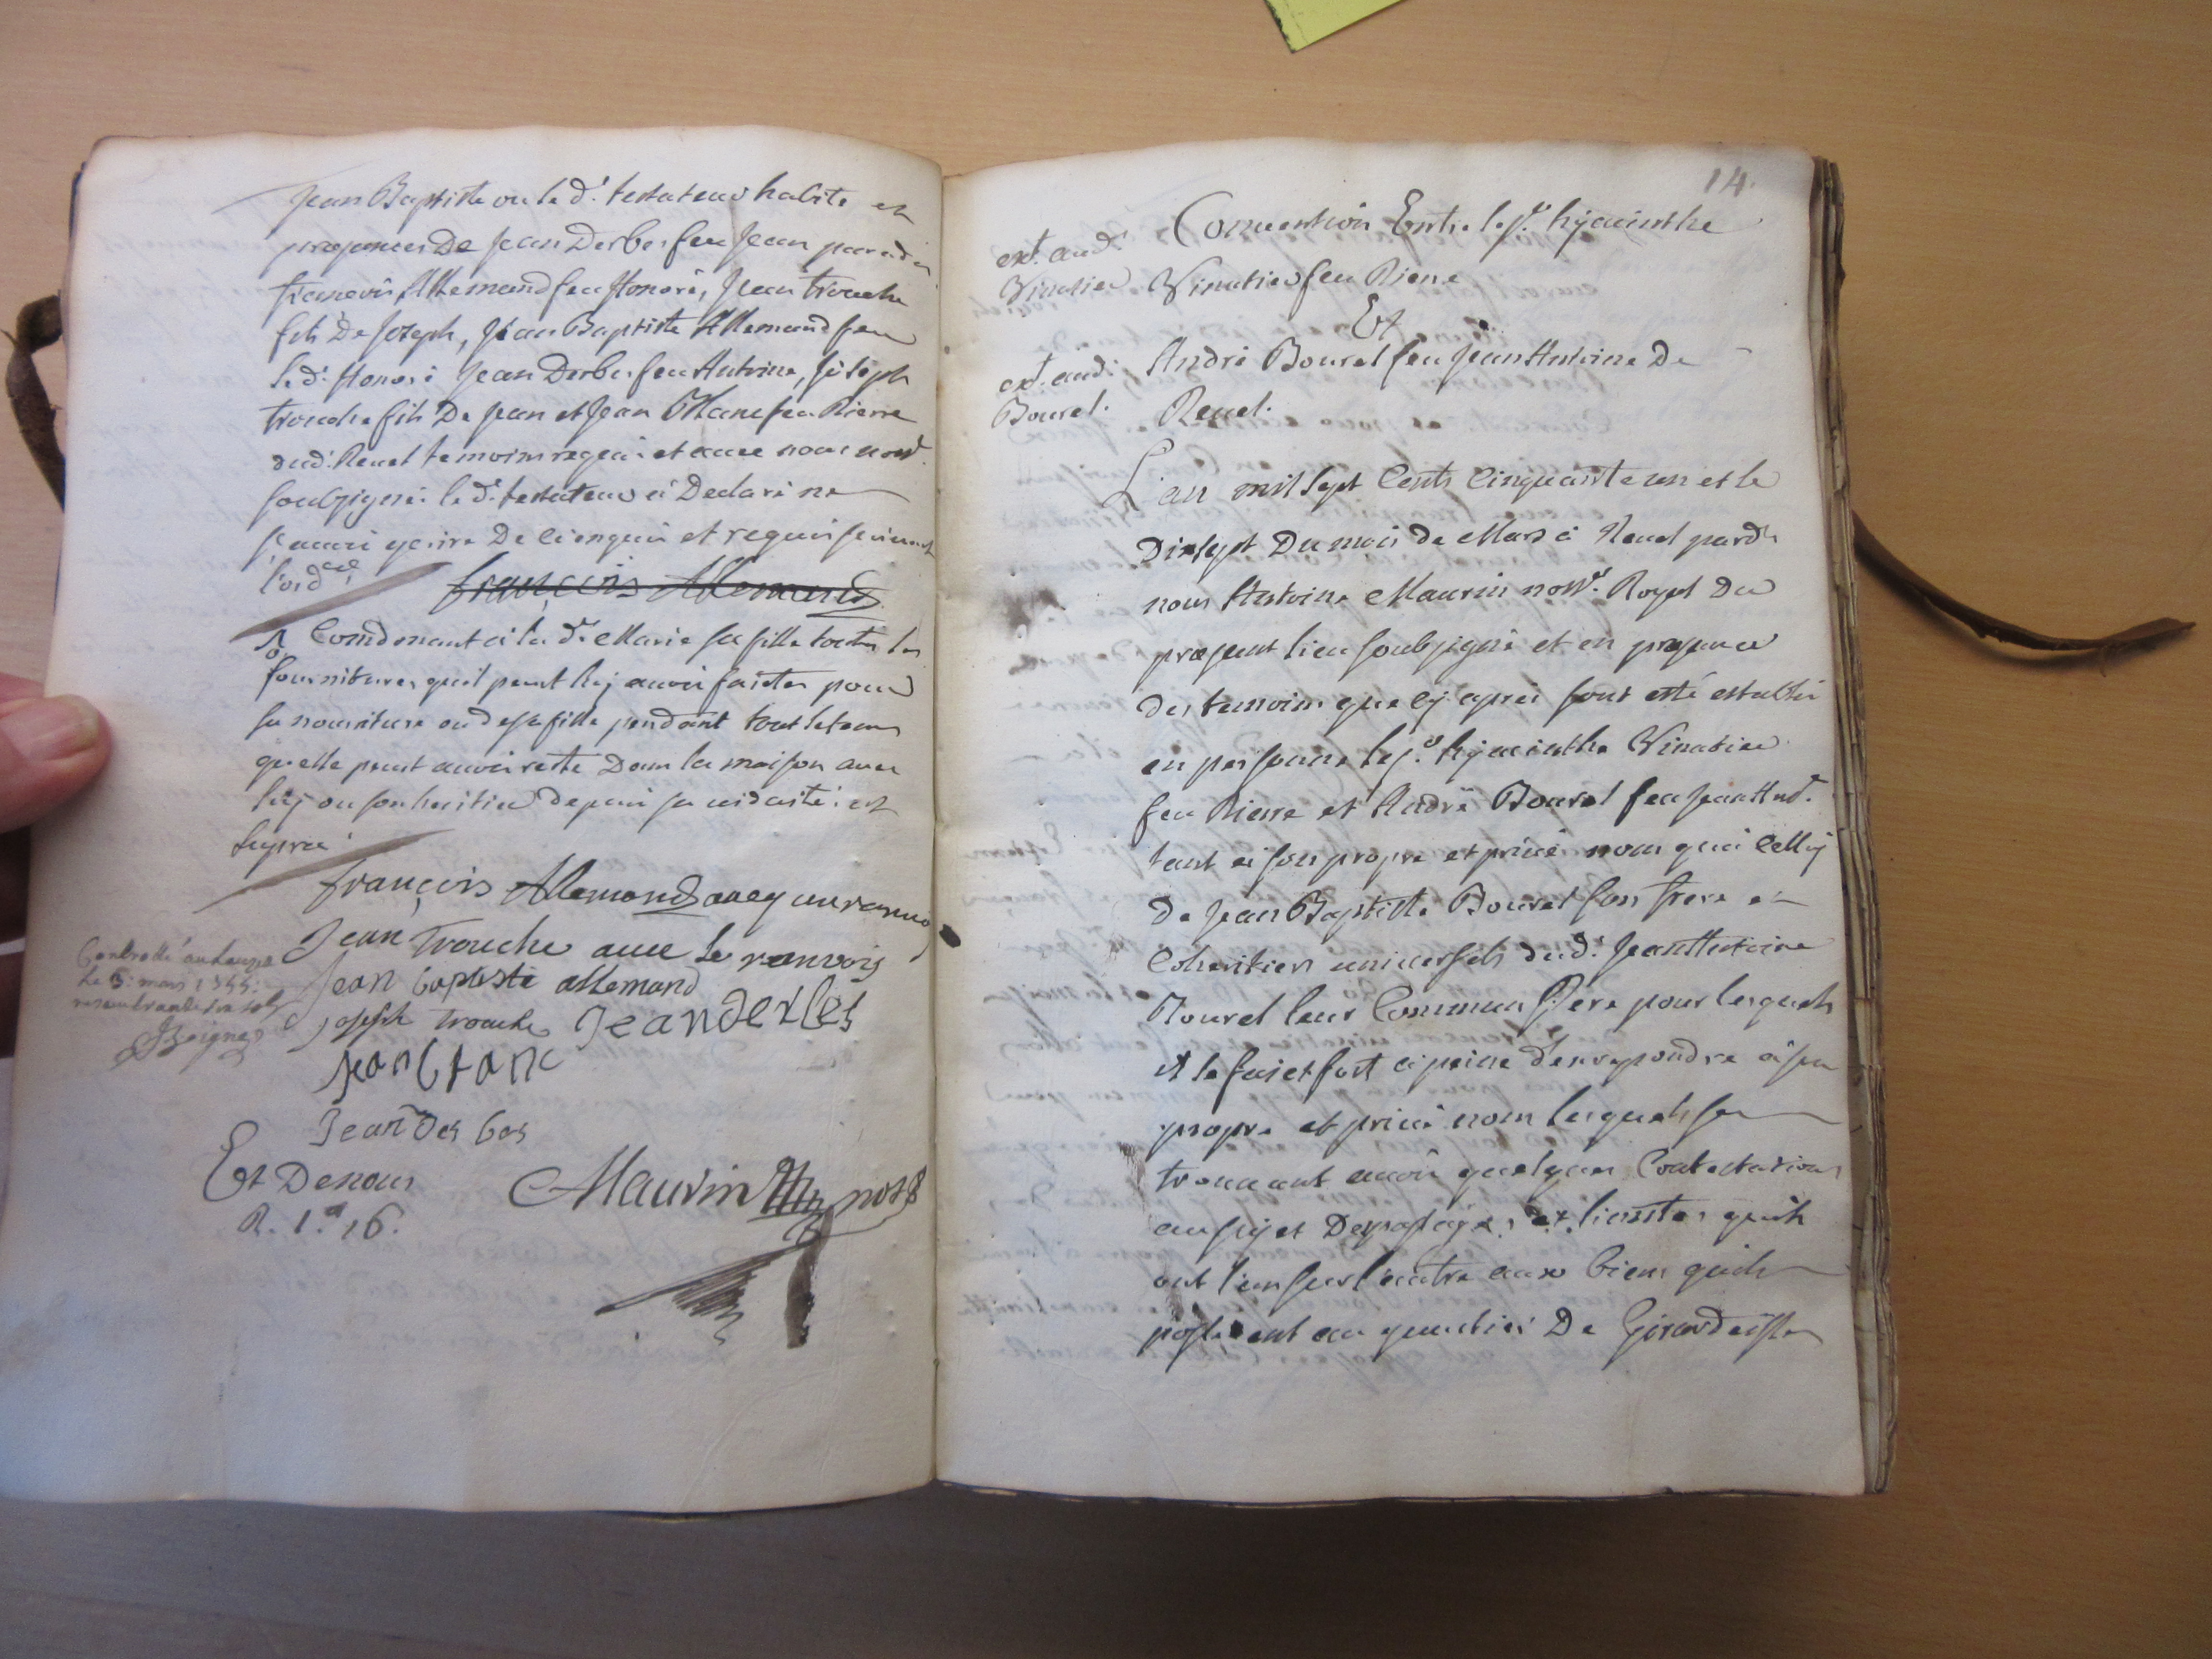 Jean Baptiste ou le d.t testateur habite et
presances De Jean Derbes feu Jean
françois Allemand feu Honoré, Jean trouche
fils De Joseph, Jean Baptiste Allemand feu
le d.t Honoré Jean Derbes feu Antoine, Joseph
trouche fils De Jean et Jean Blanc feu Pierre
dud.t Revel temoins requis et avec nous not.e
soubsigné le d.t testateur a Declaré ne
scavoir ecrire De ce enquis et requis suivant
l'ord.ce
françois Allemand
Comdonant a la d.e Marie sa fille toutes les
fournitures quil peut luy avoir faites pour
sa nourriture ou de sa fille pendant tout le tems
quelle peut avoir resté Dans la maison avec
luy ou son heritier depuis sa viduité et
françois Allemand avecq un ranvoy
Jean Trouche avec le ranvois
Jean baptiste allemand
joseph trouche Jean derbes
jean blanc
Jean Des bes
Et Denous
Maurin not.e
R. 1.# 16.
Controllé
le 5. mars
14.
Convention Entre le s.r hÿacinthe
ext. aud.t
Vinatier Vinatier feu Pierre
Et
ext. aud.t André Bourel feu Jean Antoine De
Bourel. Revel.
L'an mil sept Cents Cinquante un et le
Dixsept Du mois de Mars a Revel pard.t
nous Antoine Maurin not.e Royal Du
present lieu soubsigné et en presance
des temoins que cy apres sont esté establi
en personne le s.r hÿacinthe Vinatier
feu Pierre et André Bourel feu Jean Ant.e
tant a son propre et privé nom qua Celluy
De Jean Baptiste Bourel son frere et
Coheritiers universels dud.t Jean Antoine
Bourel leur Commun Pere pour lesquels
il se fait fort a peine d'en repondre a son
propre et privé nom lesquels se
trouvant avoir quelques Contestations
au sujet Des passages et lisieres quils
ont l'un sur l'autre aux biens quils
possedent au quartier De